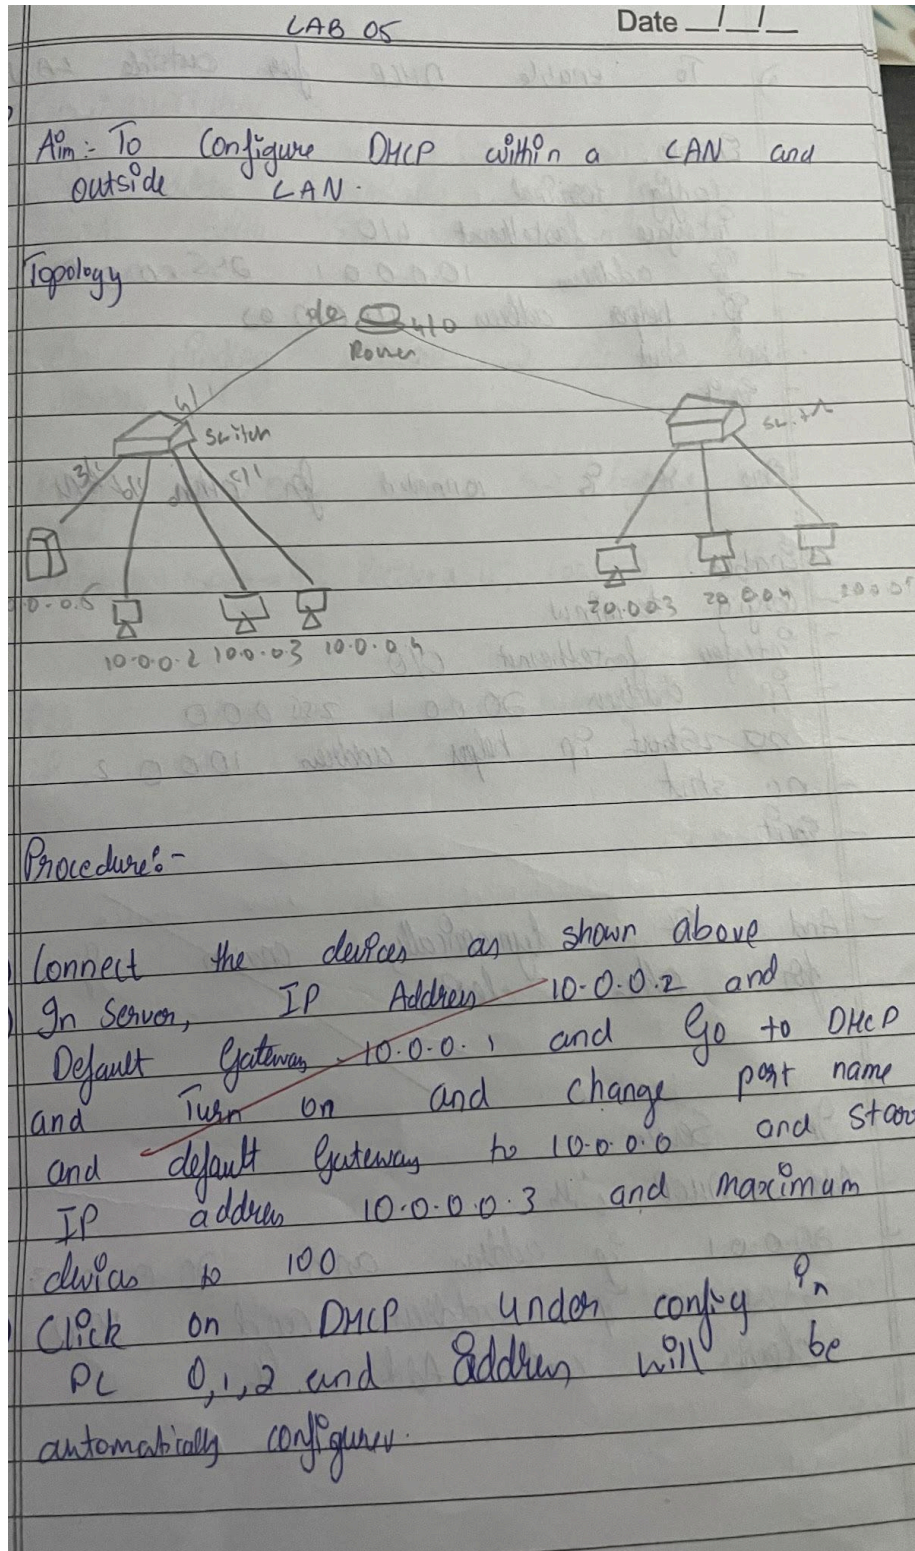 LAB 05
Date _/_/_
Aim:- To Configure DHCP within a LAN and
outside LAN.
Topology
4/0
Router
4/1
Switch
3/1
2/1
10.0.0.2 10.0.0.3 10.0.0.4
20.0.0.3 20.0.0.4 20.0.0.5
Procedure:-
Connect the devices as shown above
In Server, IP Address 10.0.0.2 and
Default Gateway 10.0.0.1 and Go to DHCP
and Turn on and change port name
and default Gateway to 10.0.0.0 and
IP address 10.0.0.0.3 and maximum
to 100
Click on DHCP under config in
PC 0,1,2 and address will be
automatically